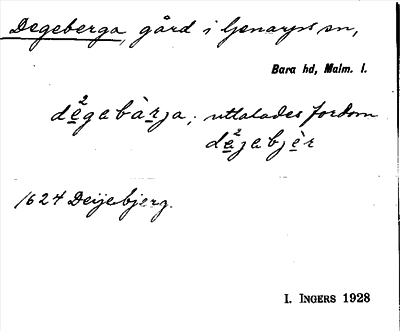 Degeberga, gård i Genarps sn,
Bara hd, Malm. l.
de²gabàrja; uttalades fordom
de²jabjèr
1624 Deijebjerg.
I. INGERS 1928